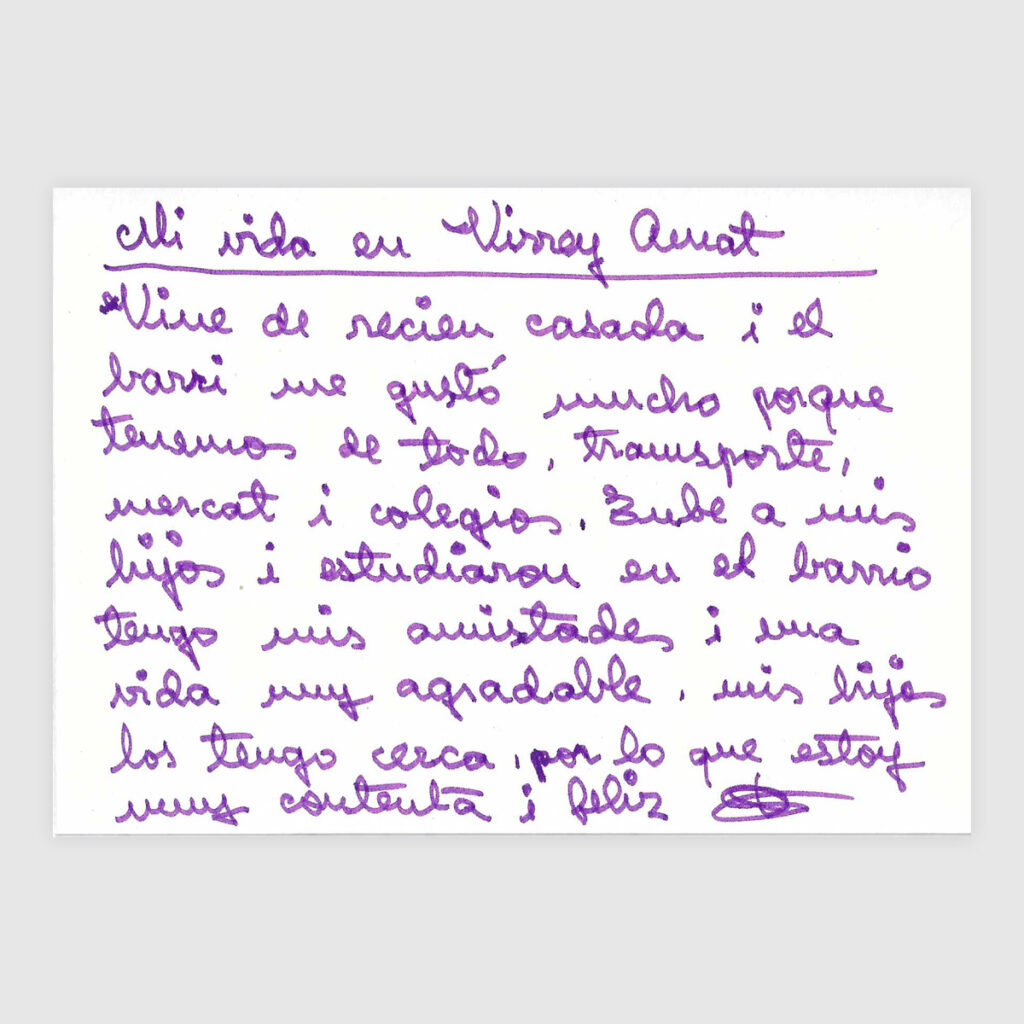 Mi vida en Virrey Amat
Vine de recien casada i el
barri me gustó mucho porque
tenemos de todo, transporte,
mercat i colegios. Tube a mis
hijos i estudiaron en el barrio
tengo mis amistades i una
vida muy agradable, mis hijos
los tengo cerca, por lo que estoy
muy contenta i feliz